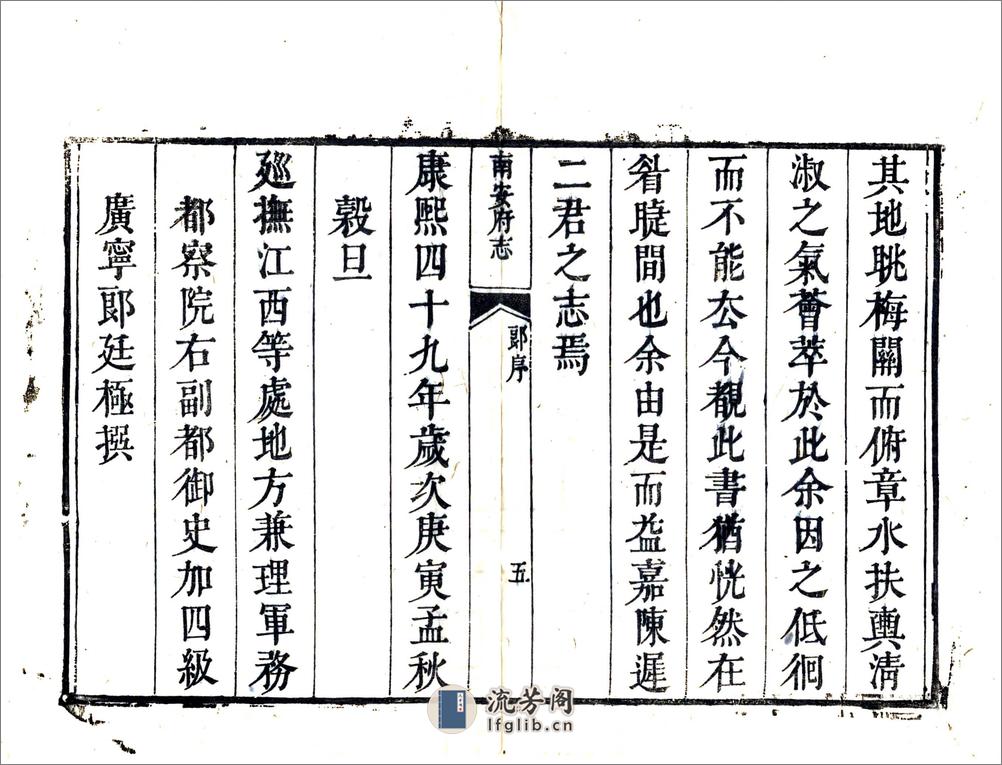 其地眺梅關而俯章水扶輿清
淑之氣薈萃於此余因之低徊
而不能去今覩此書猶恍然在
眉睫間也余由是而益嘉陳遲
二君之志焉
南安府志
郎序
五
康熙四十九年歲次庚寅孟秋
穀旦
廵撫江西等處地方兼理軍務
都察院右副都御史加四級
廣寧郎廷極撰
流芳阁
lfglib.cn